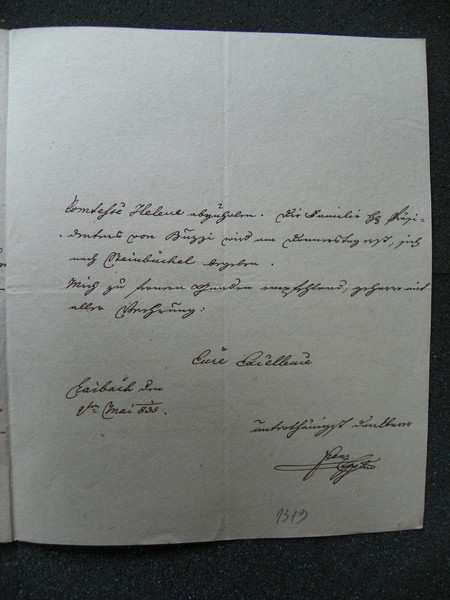 Comtesse Helene abzuholen. Die Familie H. Präsi-
dentens von Buzzi wird am Donnerstag erst, sich
nach Steinbüchel begeben.
Mich zu fernern Gnaden empfehlend, geharre mit
aller Verehrung:
Eure Excellence
Laibach den
1ten Mai 838.
unterthänigst dankbarer
Franz
1319